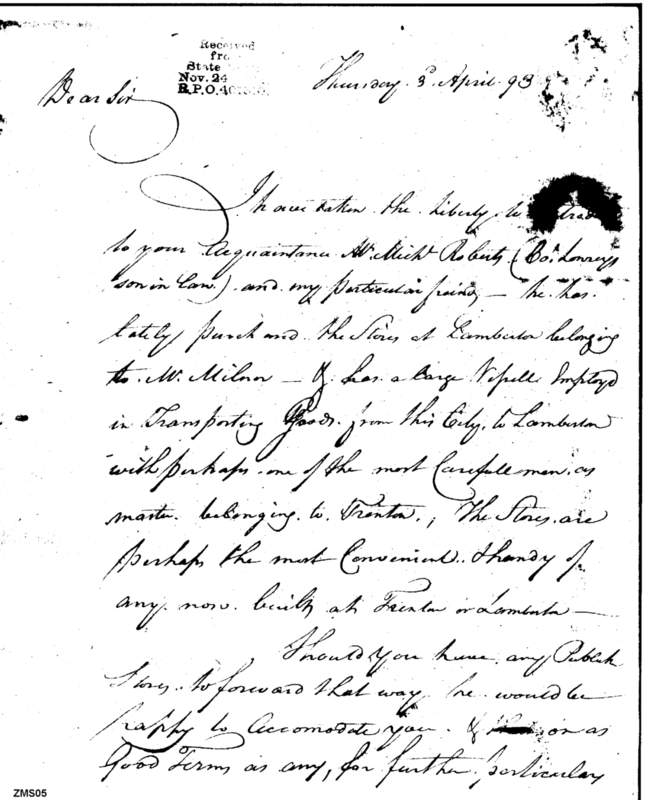 Received
from
State
Nov. 24
R.P.O. 40
Thursday. 3d. April. 93
Dear Sir
I have taken the Liberty to
to your Acquaintance Mr. Michl. Roberts (Col. Lowreys
son in Law.) and my particular friend — he has
lately purchased the Stores at Lamberton belonging
to Mr. Milnor — & has a large Vessell Employd
in Transporting Goods. from this City. to Lamberton
with perhaps. one of the most Carefull men. as
master. belonging. to Trenton., The Stores. are
perhaps the most Convenient. & handy of
any. now. built at Trenton or Lamberton —
Should you have any Publick
Stores. to forward that way. he would be
happy to Accomodate you. & on as
Good Terms as any, for further particulars
ZMS05